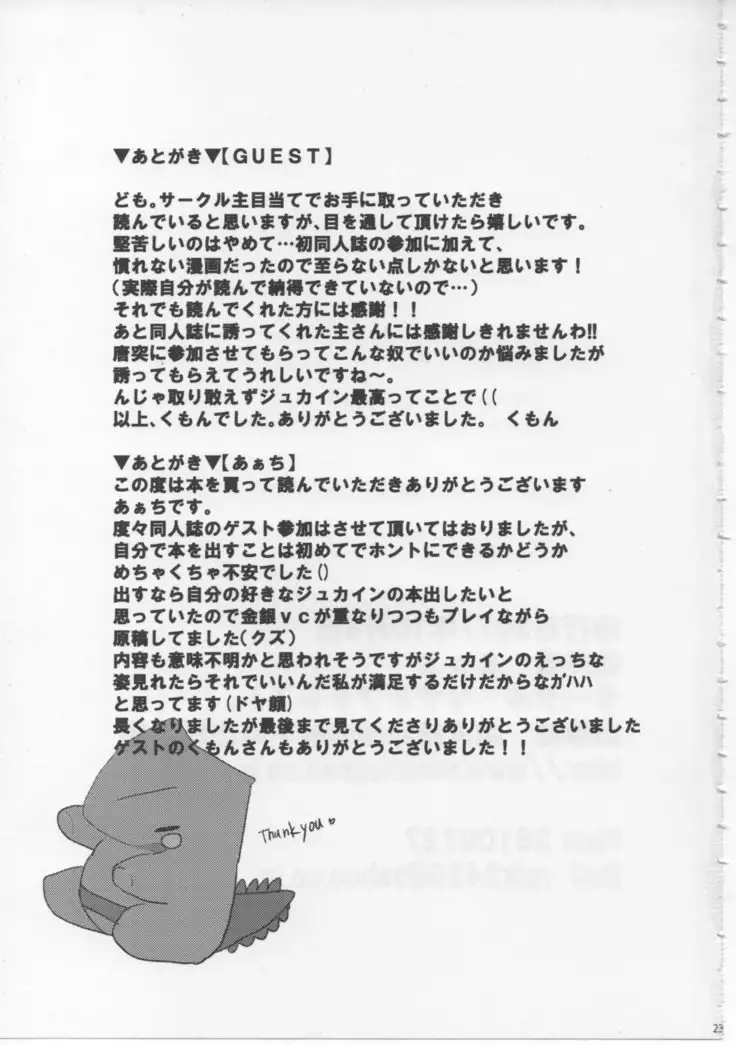 ▼あとがき▼【GUEST】
ども。サークル主目当てでお手に取っていただき
読んでいると思いますが、目を通して頂けたら嬉しいです。
堅苦しいのはやめて…初同人誌の参加に加えて、
慣れない漫画だったので至らない点しかないと思います！
（実際自分が読んで納得できていないので…）
それでも読んでくれた方には感謝！！
あと同人誌に誘ってくれた主さんには感謝しきれませんわ!!
唐突に参加させてもらってこんな奴でいいのか悩みましたが
誘ってもらえてうれしいですね～。
んじゃ取り敢えずジュカイン最高ってことで((
以上、くもんでした。ありがとうございました。　くもん
▼あとがき▼【あぁち】
この度は本を買って読んでいただきありがとうございます
あぁちです。
度々同人誌のゲスト参加はさせて頂いてはおりましたが、
自分で本を出すことは初めてでホントにできるかどうか
めちゃくちゃ不安でした()
出すなら自分の好きなジュカインの本出したいと
思っていたので金銀ｖｃが重なりつつもプレイながら
原稿してました(クズ)
内容も意味不明かと思われそうですがジュカインのえっちな
姿見れたらそれでいいんだ私が満足するだけだからなｶﾞﾊﾊ
と思ってます(ドヤ顔)
長くなりましたが最後まで見てくださりありがとうございました
ゲストのくもんさんもありがとうございました！！
Thank you♡
23